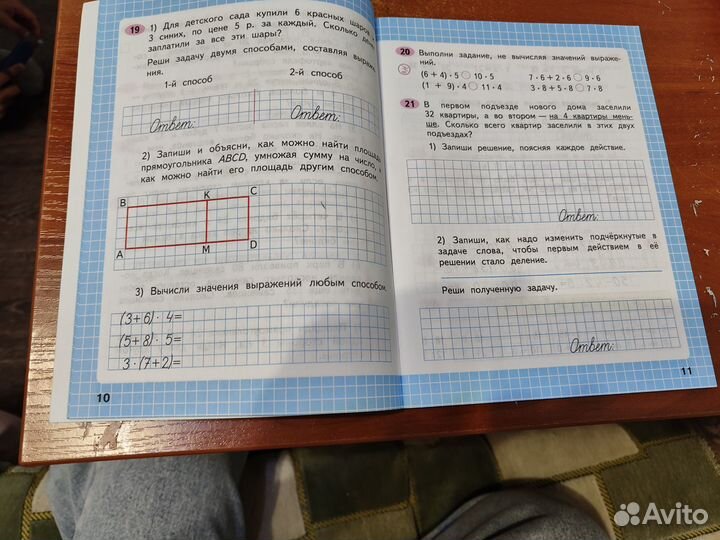 19 1) Для детского сада купили 6 красных шаров
3 синих, по цене 5 р. за каждый. Сколько
заплатили за все эти шары?
Реши задачу двумя способами, составляя
ния.
1-й способ 2-й способ
Ответ: Ответ:
2) Запиши и объясни, как можно найти площадь
прямоугольника ABCD, умножая сумму на число,
как можно найти его площадь другим способом.
B K C
A M D
3) Вычисли значения выражений любым способом.
(3+6) · 4=
(5+8) · 5=
3 · (7+2)=
10
20 Выполни задание, не вычисляя значений выраже-
ний.
(6 + 4) · 5 10 · 5 7 · 6 + 2 · 6 9 · 6
(1 + 9) · 4 11 · 4 3 · 8 + 5 · 8 7 · 8
21 В первом подъезде нового дома заселили
32 квартиры, а во втором — на 4 квартиры мень-
ше. Сколько всего квартир заселили в этих двух
подъездах?
1) Запиши решение, поясняя каждое действие.
Ответ:
2) Запиши, как надо изменить подчёркнутые в
задаче слова, чтобы первым действием в её
решении стало деление.
Реши полученную задачу.
Ответ:
11
Avito